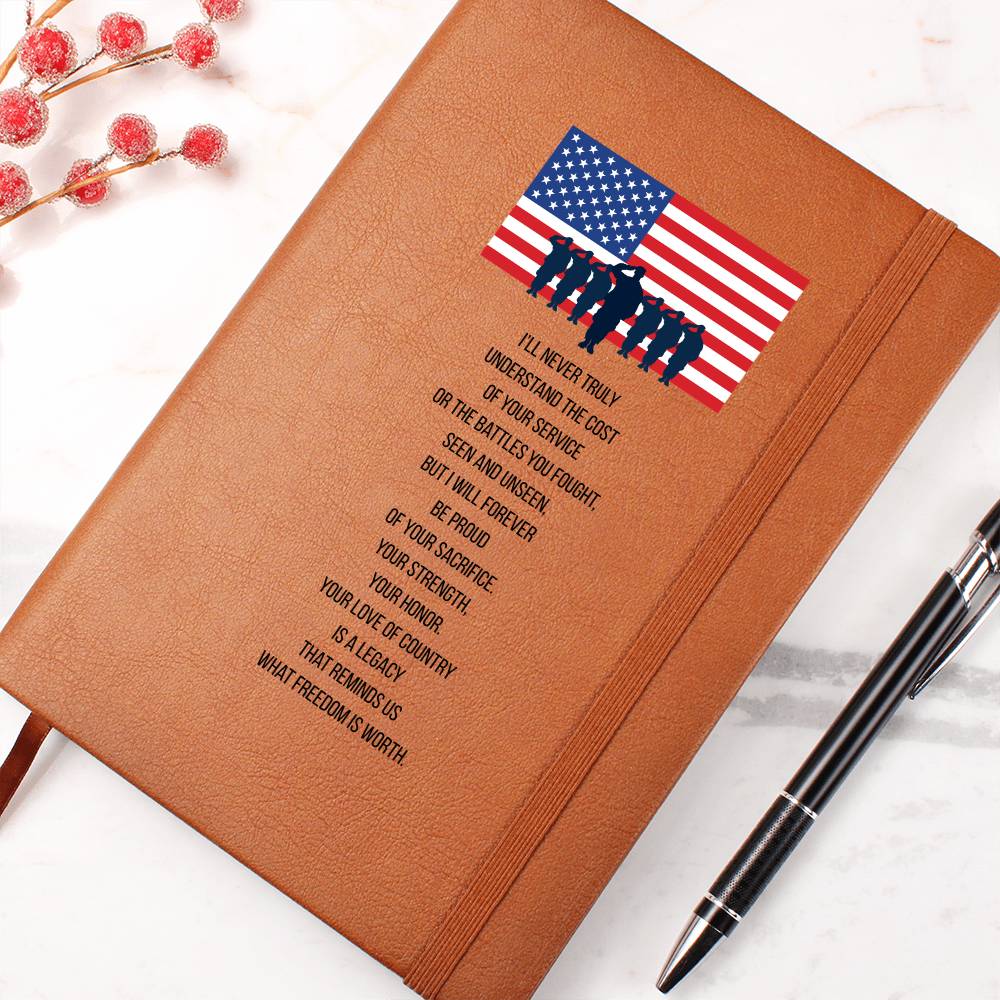 I'LL NEVER TRULY
UNDERSTAND THE COST
OF YOUR SERVICE
OR THE BATTLES YOU FOUGHT,
SEEN AND UNSEEN,
BUT I WILL FOREVER
BE PROUD
OF YOUR SACRIFICE.
YOUR STRENGTH,
YOUR HONOR,
YOUR LOVE OF COUNTRY
IS A LEGACY
THAT REMINDS US
WHAT FREEDOM IS WORTH.